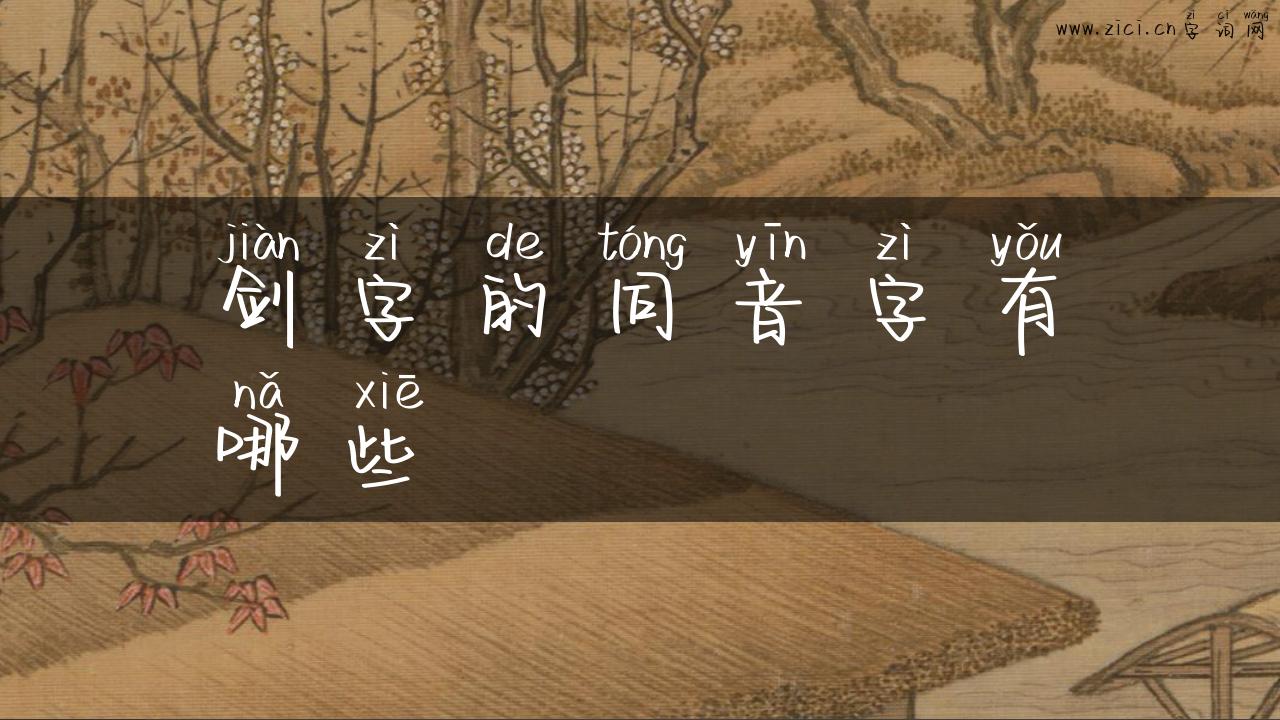 zì cí wǎng
www.zici.cn字词网
jiàn zì de tóng yīn zì yǒu
剑字的同音字有
nǎ xiē
哪些